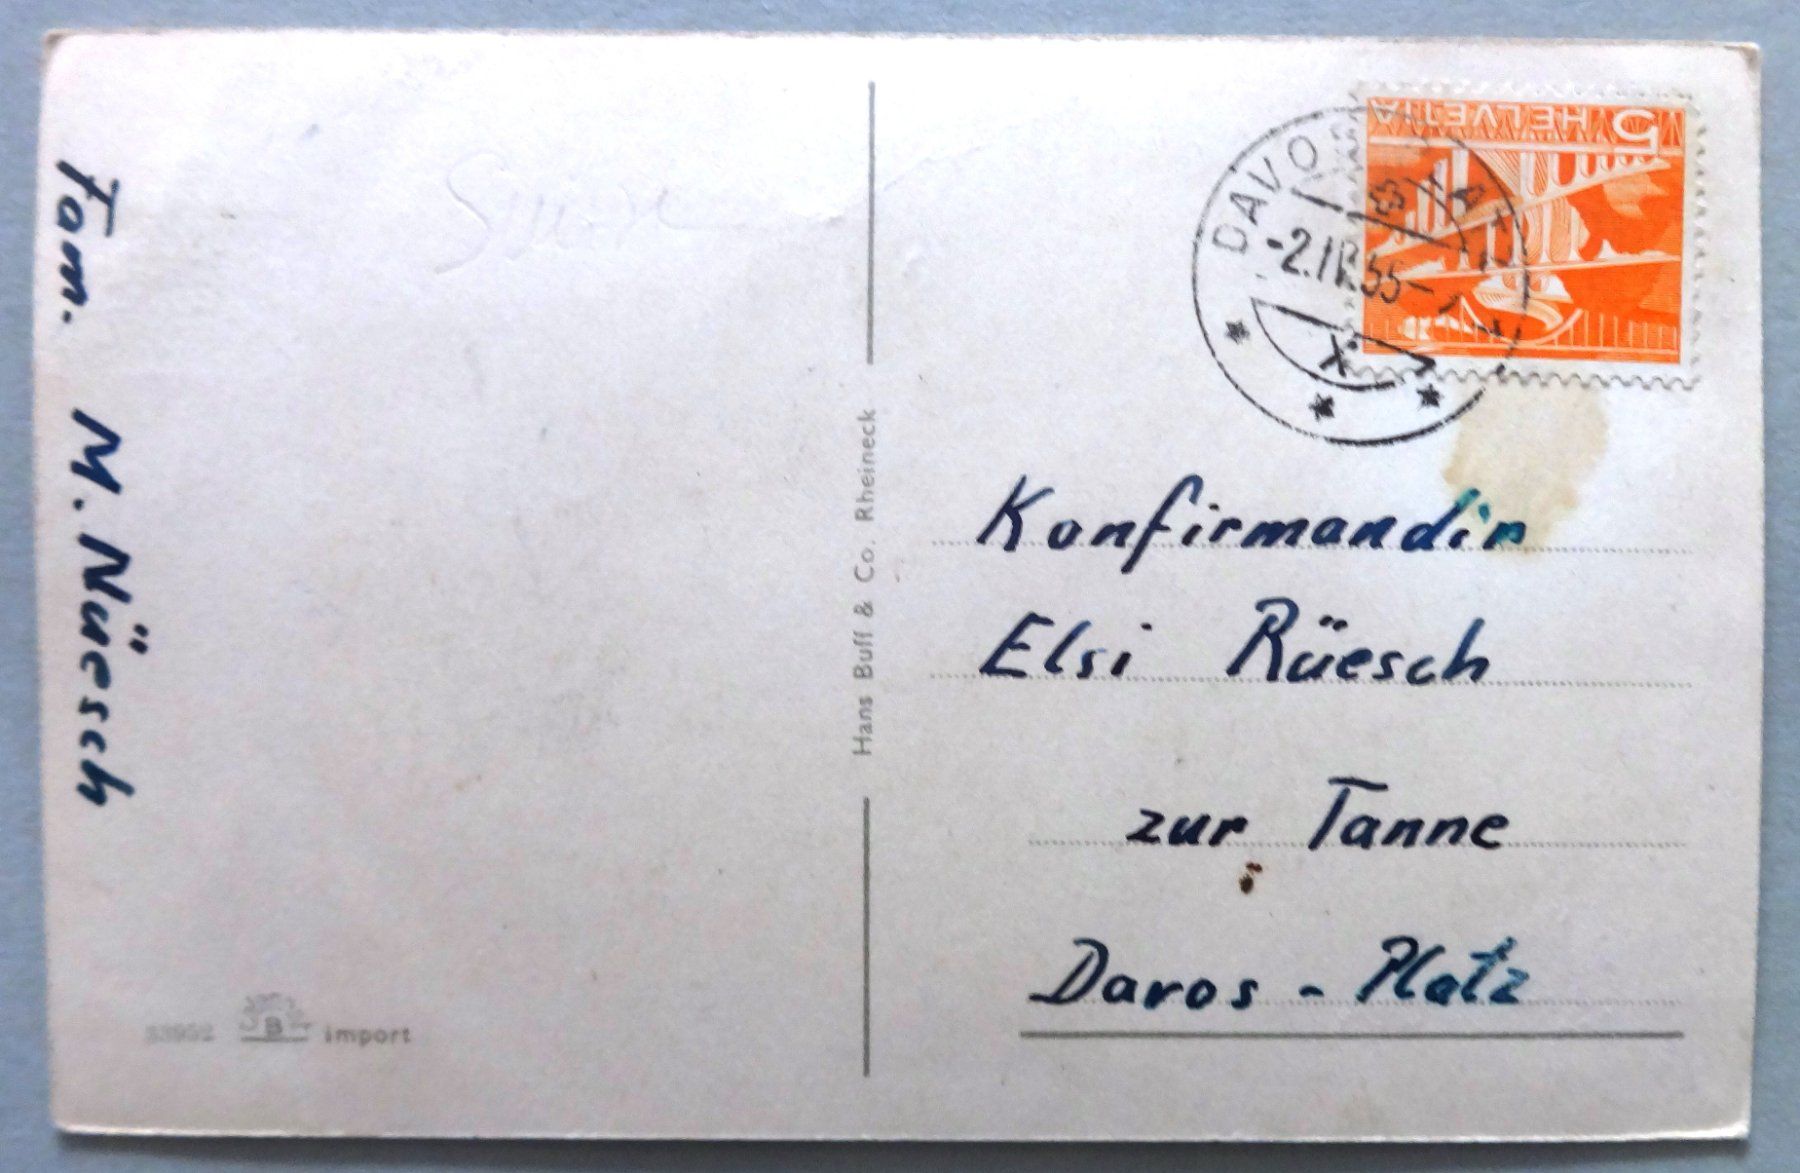 Fam. M. Nüesch
Hans Buff & Co. Rheineck
import
B
5 HELVETIA
DAVOS PLATZ
-2.IV.55-
X
Konfirmandin
Elsi Rüesch
zur Tanne
Davos - Platz